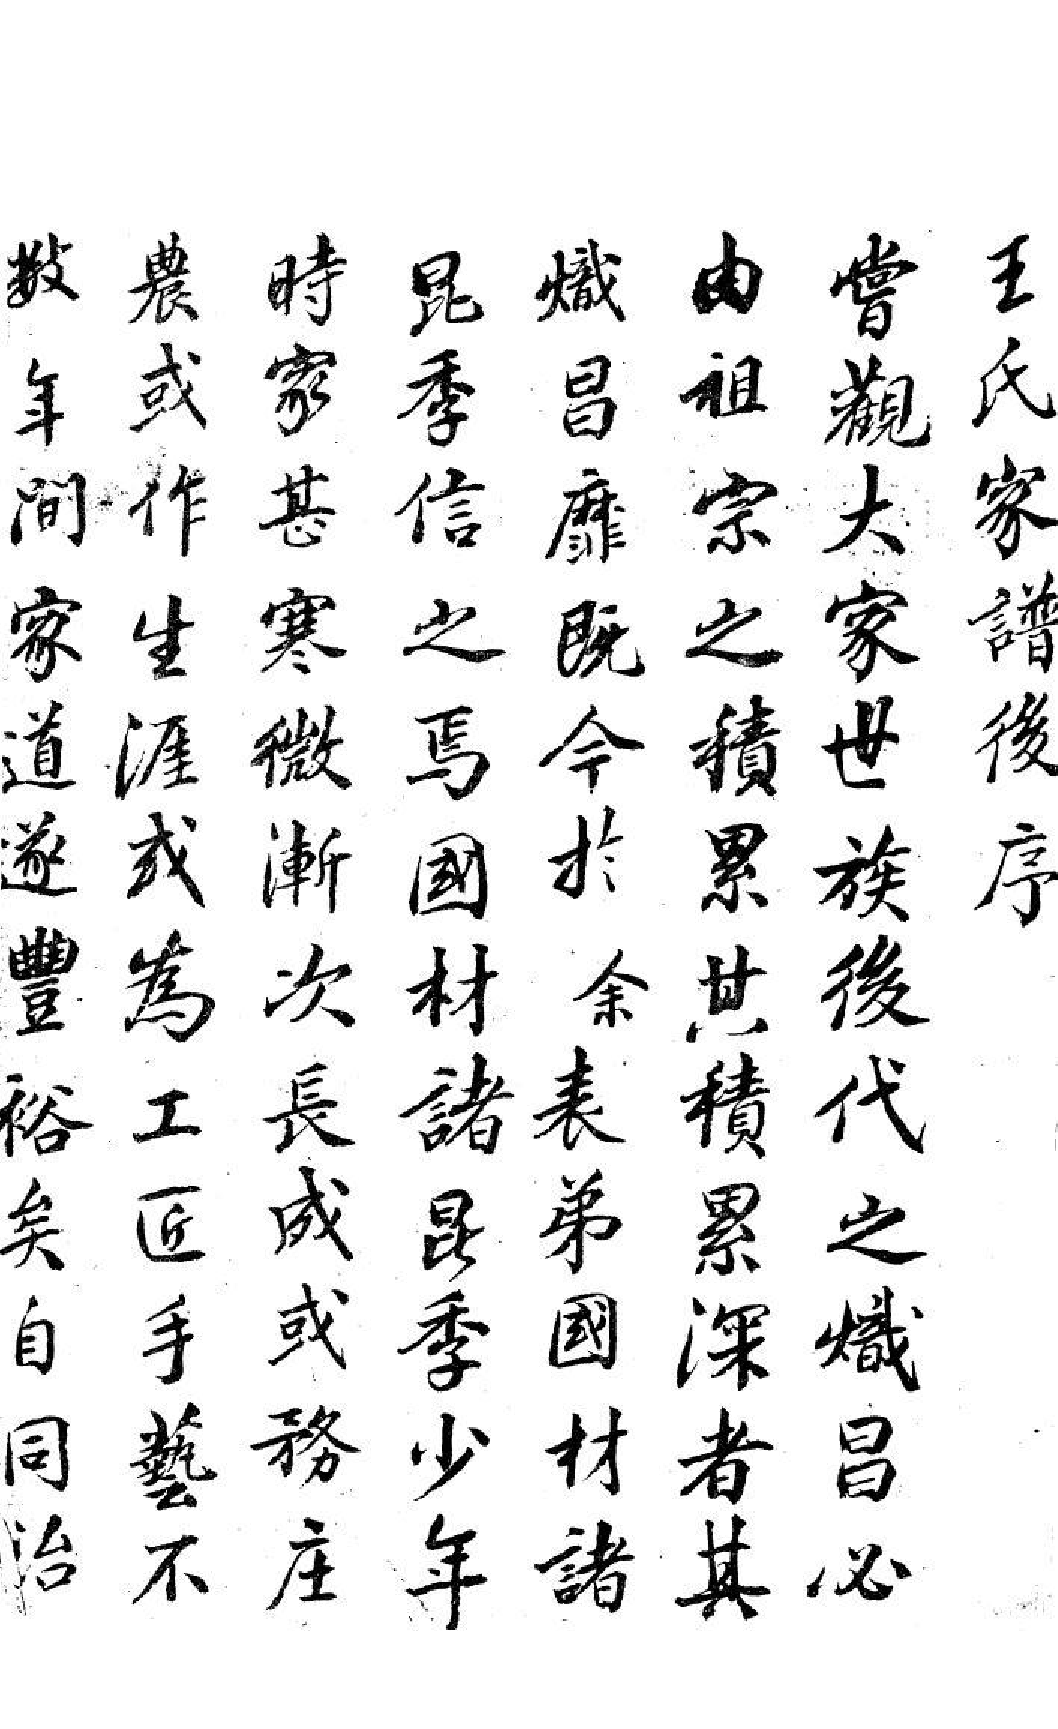 王氏家譜後序
嘗觀大家世族後代之熾昌必
由祖宗之積累其積累深者其
熾昌靡既今於余表弟國材諸
昆季信之焉國材諸昆季少年
時家甚寒微漸次長成或務庄
農或作生涯或為工匠手藝不
数年間家道遂豐裕矣自同治